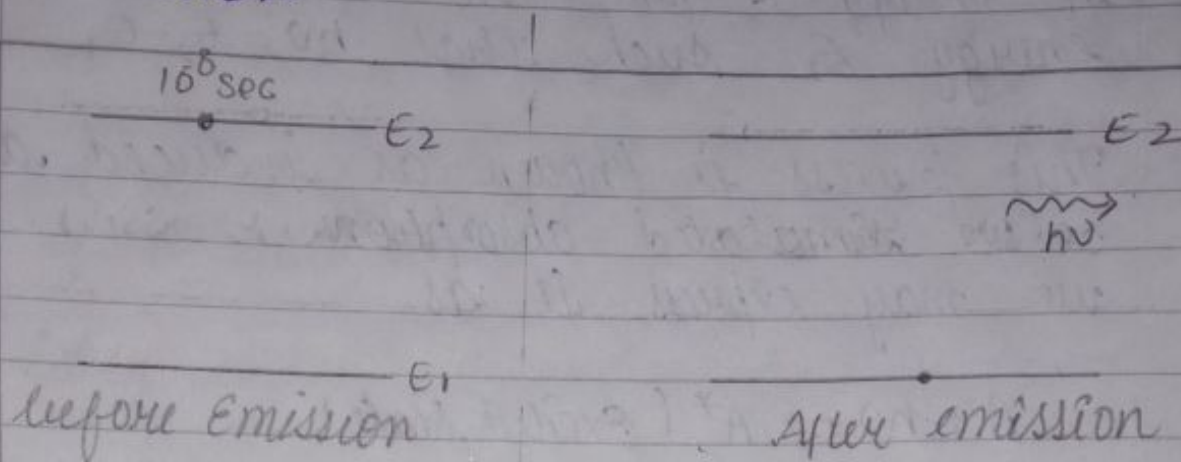 10⁸ sec
E2 E2
hν
E1
before Emission After emission